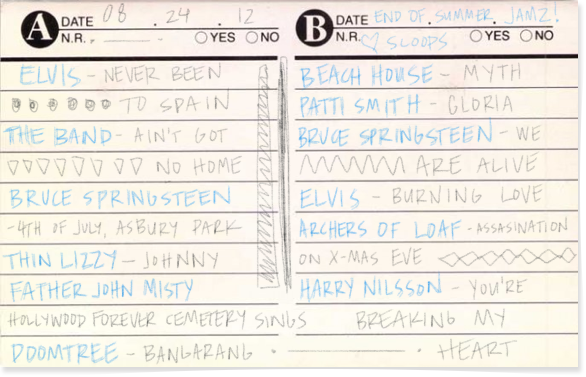 A DATE 08 . 24 . 12
N.R. YES NO
ELVIS - NEVER BEEN
TO SPAIN
THE BAND - AIN'T GOT
NO HOME
BRUCE SPRINGSTEEN
-4TH OF JULY, ASBURY PARK
THIN LIZZY - JOHNNY
FATHER JOHN MISTY
HOLLYWOOD FOREVER CEMETERY SINGS
DOOMTREE - BANGARANG
B DATE END OF SUMMER JAMZ!
N.R. ♡ SLOOPS YES NO
BEACH HOUSE - MYTH
PATTI SMITH - GLORIA
BRUCE SPRINGSTEEN - WE
ARE ALIVE
ELVIS - BURNING LOVE
ARCHERS OF LOAF - ASSASINATION
ON X-MAS EVE
HARRY NILSSON - YOU'RE
BREAKING MY
HEART